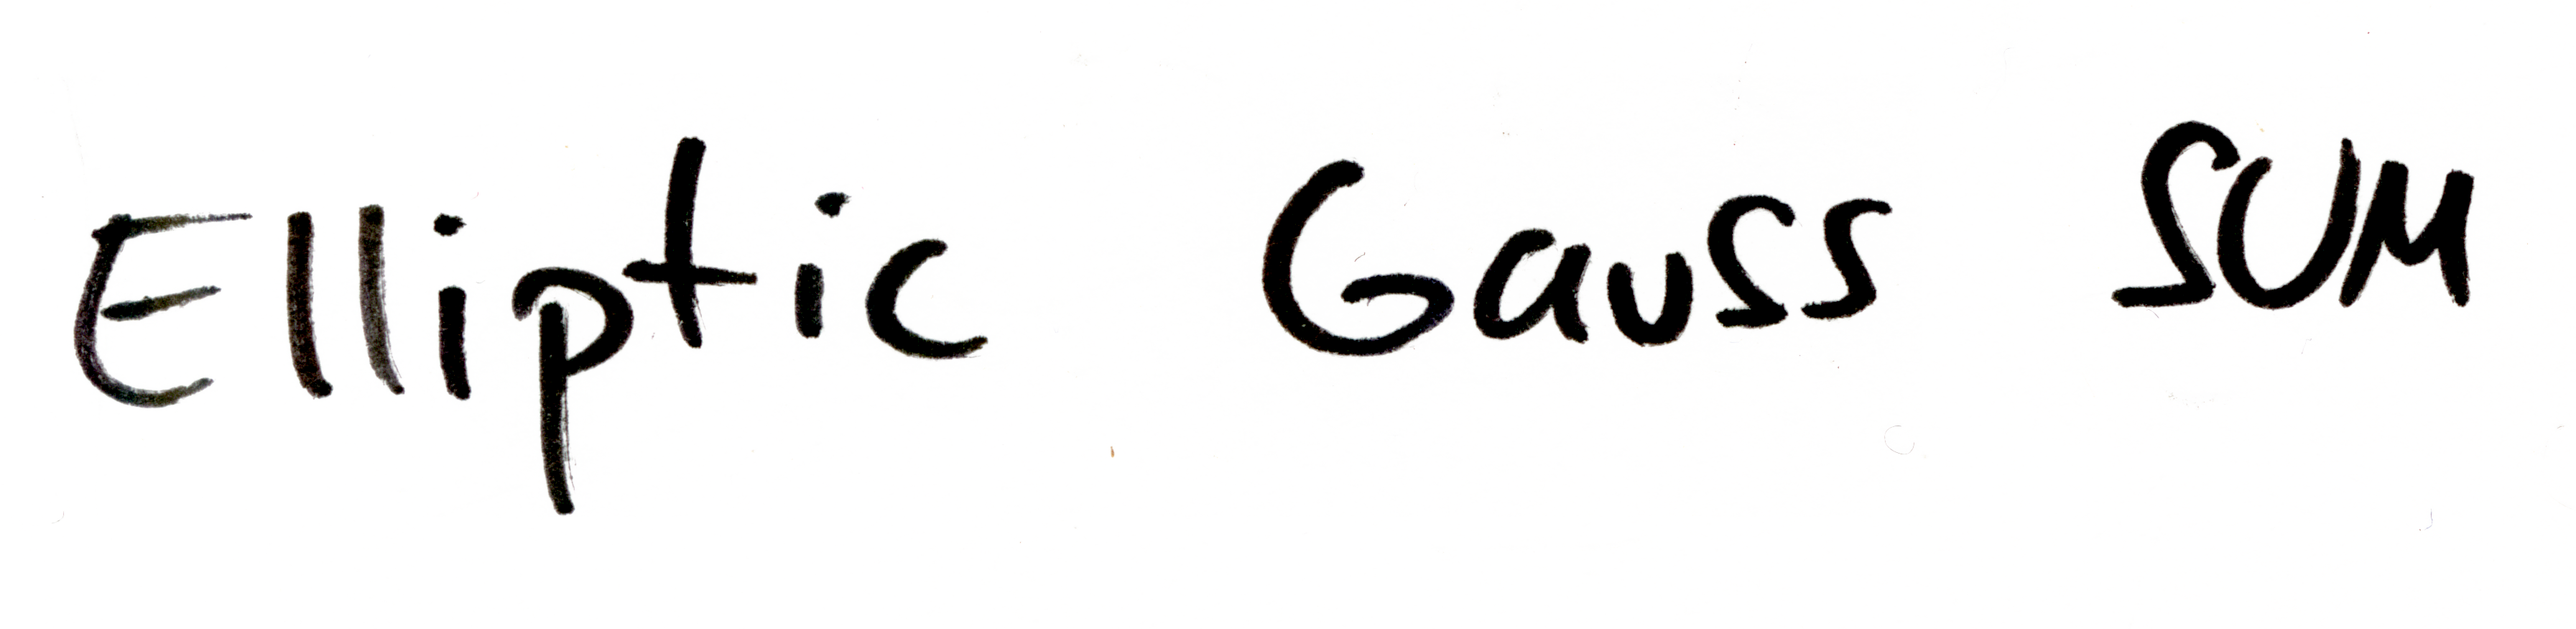 Elliptic Gauss SUM